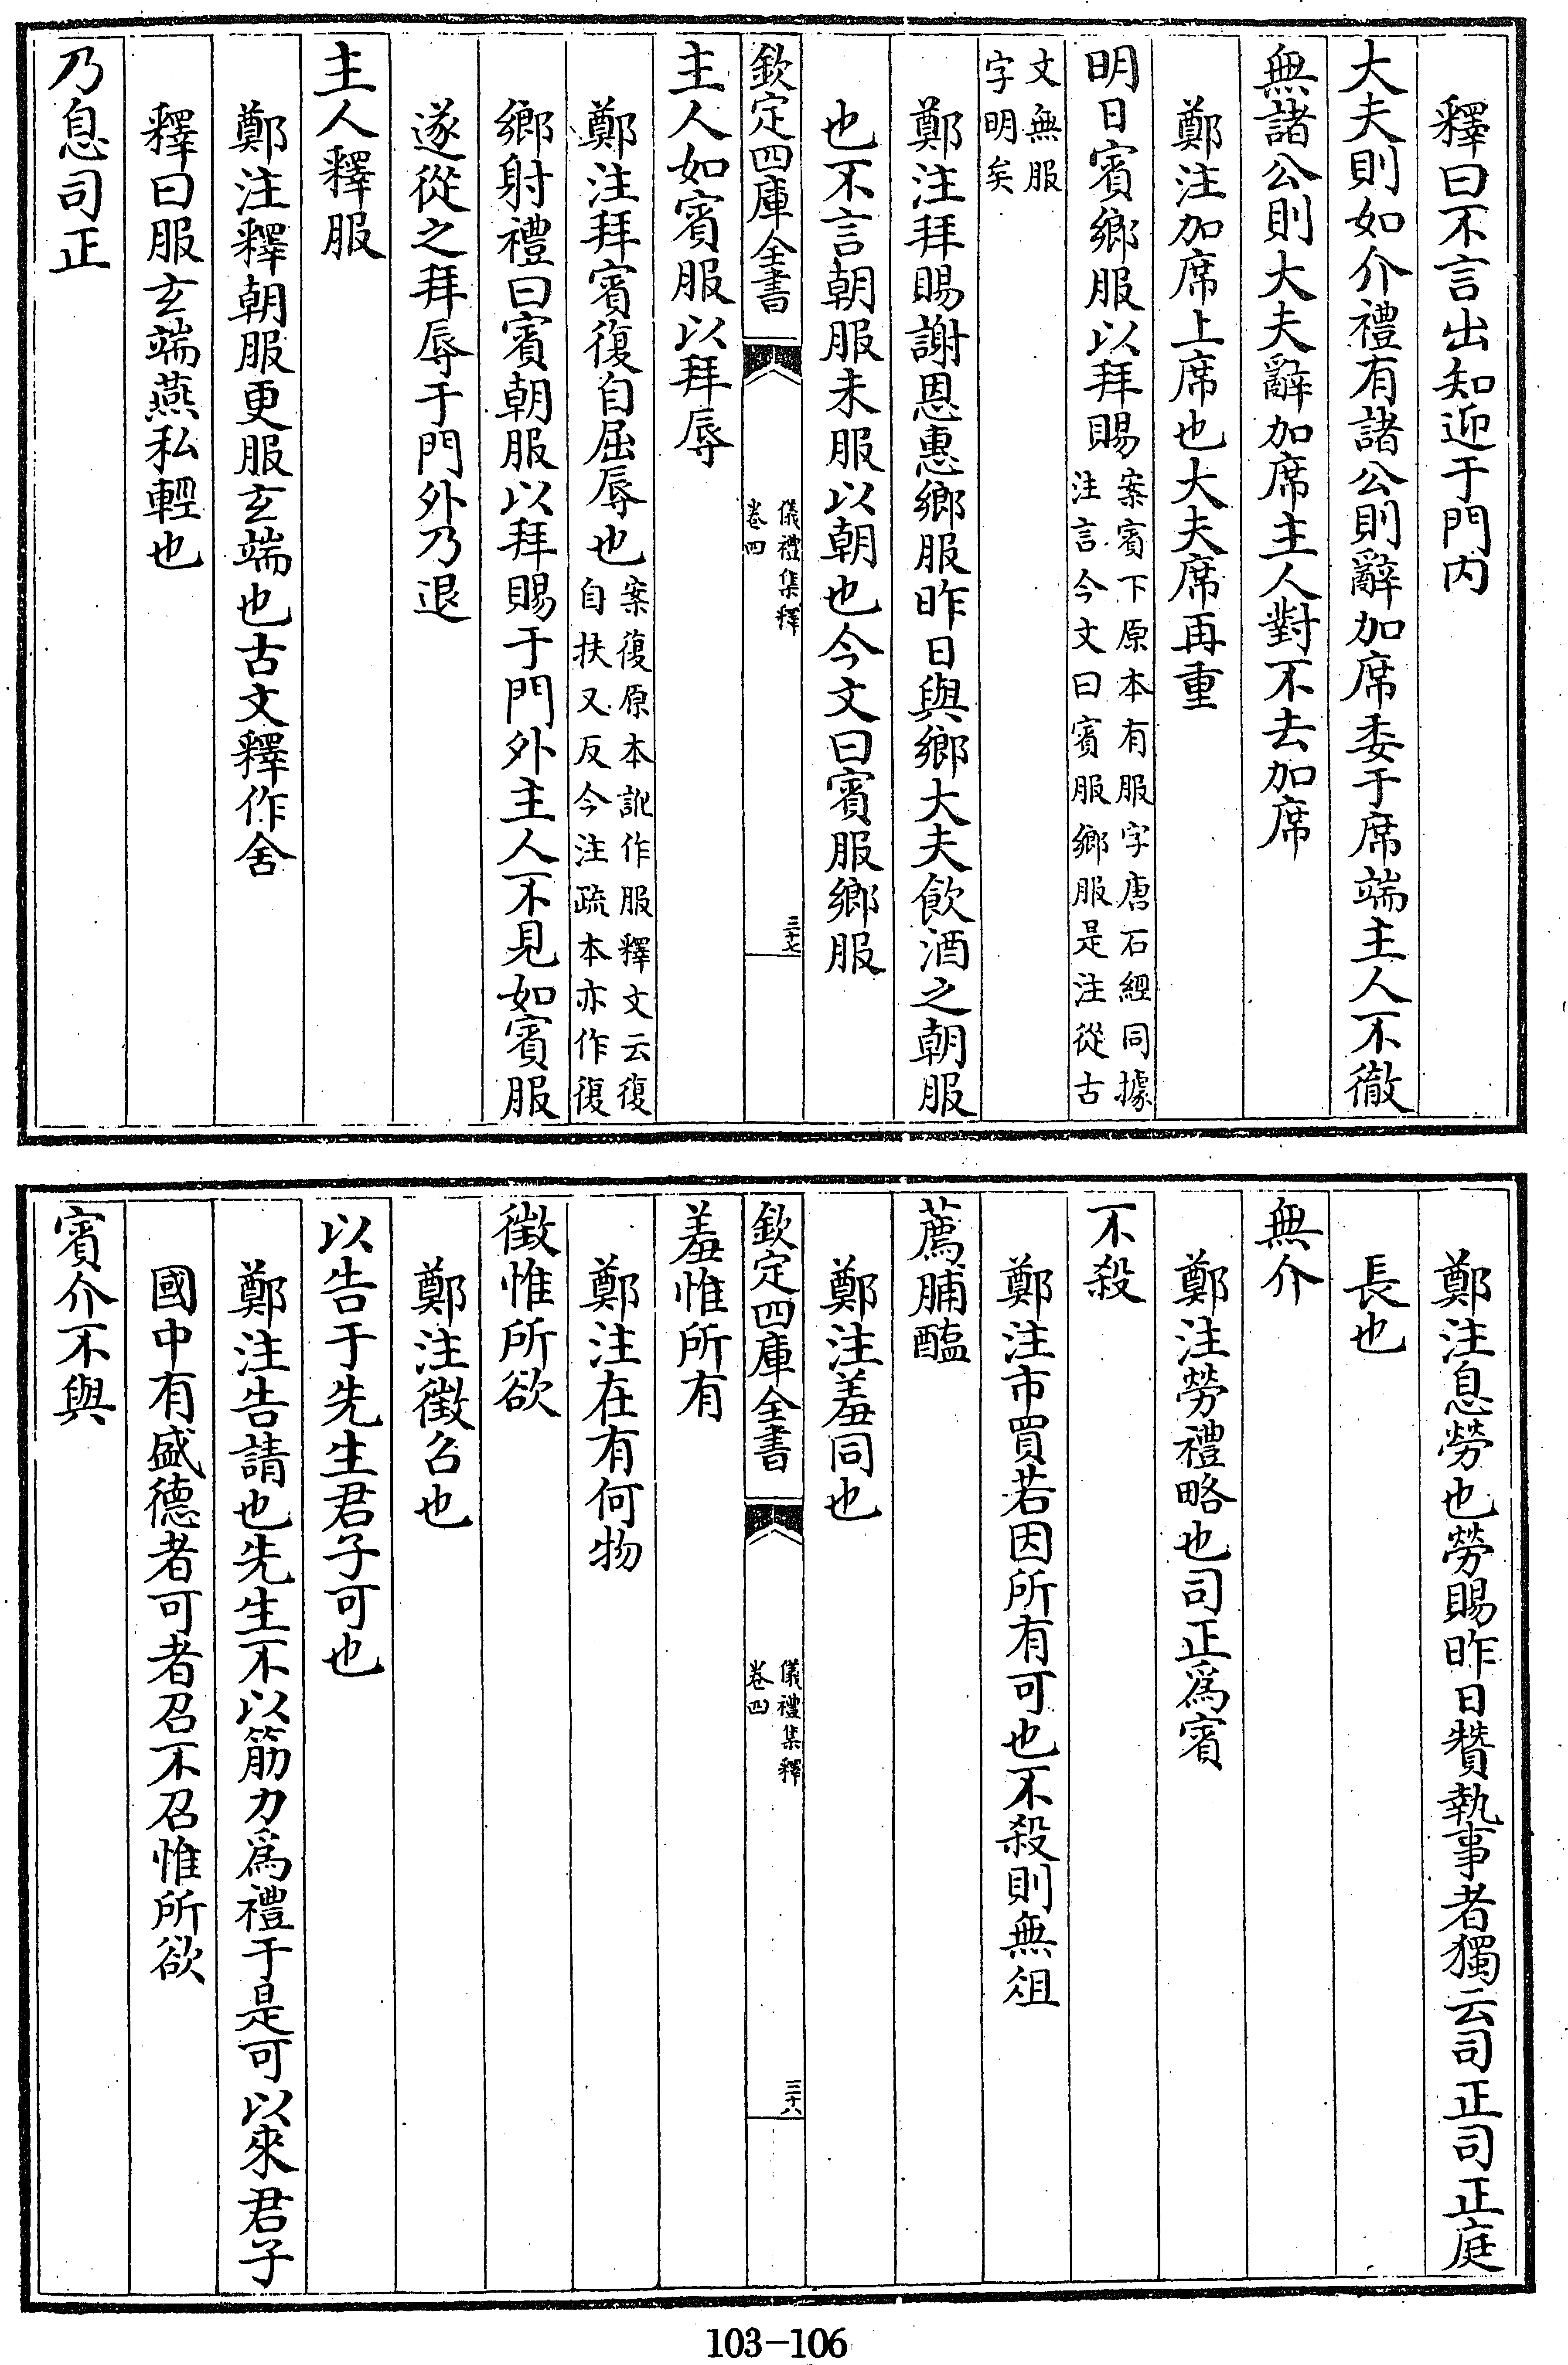 釋曰不言出知迎于門内
大夫則如介禮有諸公則辭加席委于席端主人不徹
無諸公則大夫辭加席主人對不去加席
鄭注加席上席也大夫席再重
明日賓鄉服以拜賜案賓下原本有服字唐石經同據
注言今文曰賓服鄉服是注從古
文無服
字明矣
鄭注拜賜謝恩惠鄉服昨日與鄉大夫飲酒之朝服
也不言朝服未服以朝也今文曰賓服鄉服
欽定四庫全書
儀禮集釋
卷四
三十七
主人如賓服以拜辱
鄭注拜賓復自屈辱也案復原本訛作服釋文云復
自扶又反今注疏本亦作復
鄉射禮曰賓朝服以拜賜于門外主人不見如賓服
遂從之拜辱于門外乃退
主人釋服
鄭注釋朝服更服玄端也古文釋作舍
釋曰服玄端燕私輕也
乃息司正
鄭注息勞也勞賜昨日贊執事者獨云司正司正庭
長也
無介
鄭注勞禮略也司正爲賓
不殺
鄭注市買若因所有可也不殺則無俎
薦脯醢
鄭注羞同也
欽定四庫全書
儀禮集釋
卷四
三十八
羞惟所有
鄭注在有何物
徵惟所欲
鄭注徵召也
以告于先生君子可也
鄭注告請也先生不以筋力爲禮于是可以來君子
國中有盛德者可者召不召惟所欲
賓介不與
103-106